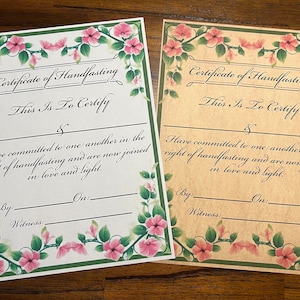 Certificate of Handfasting
This Is To Certify
&
have committed to one another in the
right of handfasting and are now joined
in love and light.
By On:
Witness:
Certificate of Handfasting
This Is To Certify
&
Have committed to one another in the
right of handfasting and are now joined
in love and light.
By On:
Witness: